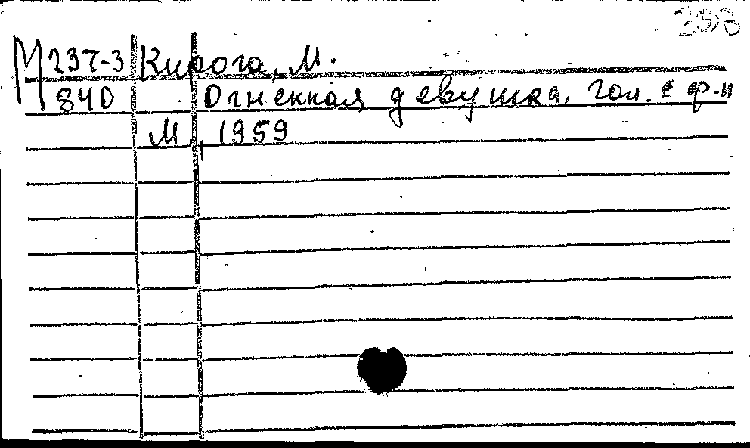 398
М 237-3 Кирога, М.
840 Огненная девушка. Гол. с ф-п
М, 1959